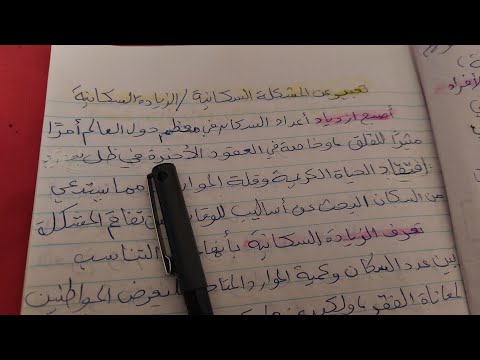 تعبير عن المشكلة السكانية / الزيادة السكانية
أصبح ازدياد أعداد السكان في معظم دول العالم أمرًا
مثيرًا للقلق، وخاصة في العقود الأخيرة في ظل
افتقاد الحياة الكريمة وقلة الموارد مما يستدعي
من السكان البحث عن أساليب تفاقم المشكلة
تعرف الزيادة السكانية بأنها التناسب
بين عدد السكان وكمية الموارد المتاحة يعرض المواطنين
لمعاناة الفقر، ولكن
الأفراد